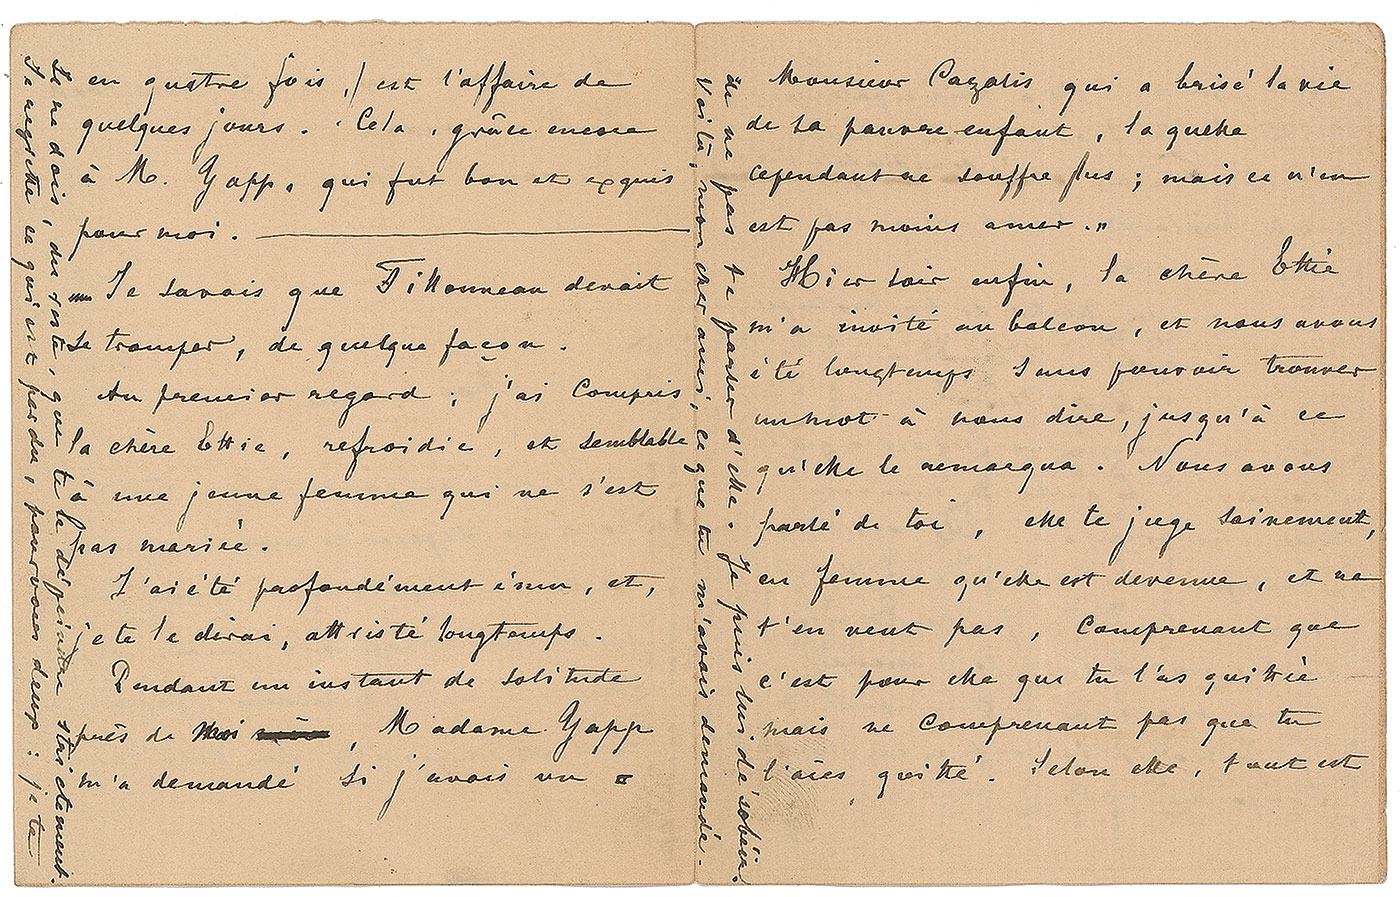 en quatre fois, est l'affaire de
quelques jours. Cela, grâce encore
à M. Yapp, qui fut bon et exquis
pour moi.
Je savais que Fillonneau devait
se tromper, de quelque façon.
Au premier regard, j'ai compris
la chère Ettie, refroidie, et semblable
à une jeune femme qui ne s'est
pas mariée.
J'ai été profondément ému, et,
je te le dirai, attristé longtemps.
Pendant un instant de solitude
près de moi, Madame Yapp
m'a demandé si j'avais vu
Monsieur Cazalis qui a brisé la vie
de sa pauvre enfant, laquelle
cependant ne souffre plus ; mais ce n'en
est pas moins amer."
Hier soir enfin, la chère Ettie
m'a invité au balcon, et nous avons
été longtemps sans pouvoir trouver
un mot à nous dire, jusqu'à ce
qu'elle le remarqua. Nous avons
parlé de toi, elle te juge sainement,
en femme qu'elle est devenue, et ne
t'en veut pas, comprenant que
c'est pour elle que tu l'as quittée
mais ne comprenant pas que tu
l'aies quitté. Selon elle, tout est
Voilà, mon cher ami, ce que tu m'avais demandé.
Je regrette ce qui est perdu, pour vous deux : je te
Je ne dois, du reste, que te le dépeindre strictement.
de ne pas te parler d'elle. Je puis lui désobéir.